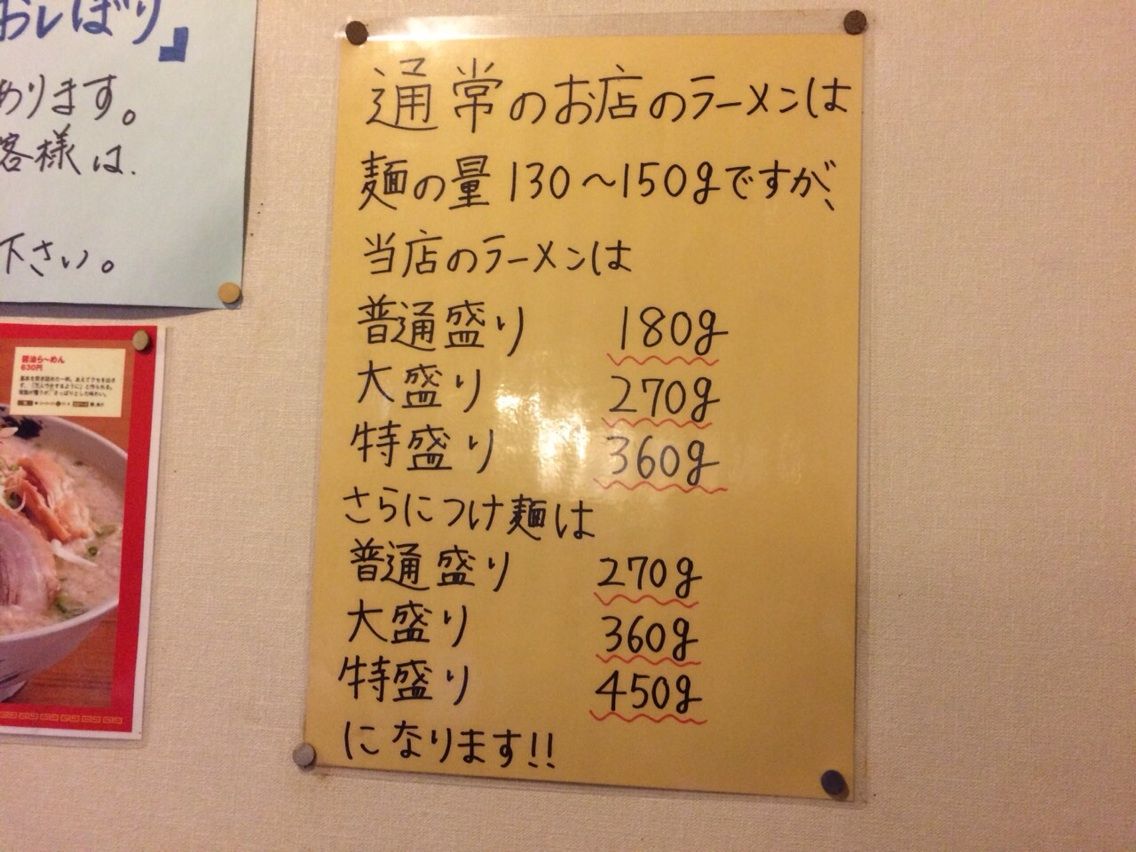 おしぼり』
あります。
客様は、
下さい。
醤油ら〜めん
630円
通常のお店のラーメンは
麺の量130〜150gですが、
当店のラーメンは
普通盛り 180g
大盛り 270g
特盛り 360g
さらにつけ麺は
普通盛り 270g
大盛り 360g
特盛り 450g
になります!!